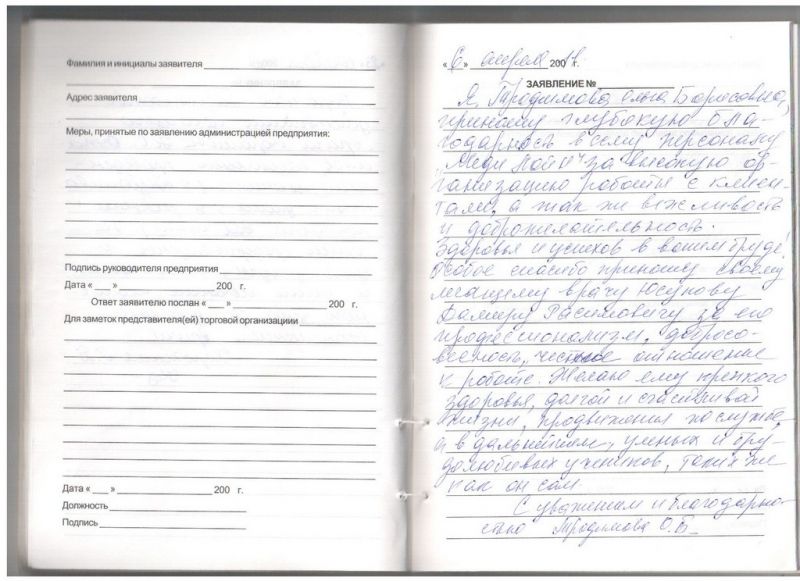 Фамилия и инициалы заявителя
Адрес заявителя
Меры, принятые по заявлению администрацией предприятия:
Подпись руководителя предприятия
Дата « ___ » 200 г.
Ответ заявителю послан « ___ » 200 г.
Для заметок представителя(ей) торговой организациии
Дата « ___ » 200 г.
Должность
Подпись
« 6 » апреля 200 11 г.
ЗАЯВЛЕНИЕ №
Я, Трофимова Ольга Борисовна,
приношу глубокую бла-
годарность всему персоналу
"Меди Лайн" за высокую ор-
ганизацию работы с клиен-
тами, а так же вежливость
и доброжелательность.
Здоровья и успехов в вашем труде!
Особое спасибо приношу своему
лечащему врачу Юсупову
Дамиру Расимовичу за его
профессионализм, добросо-
вестность, честное отношение
к работе. Желаю ему крепкого
здоровья, долгой и счастливой
жизни, продвижения по службе,
а в дальнейшем, умных и тру-
долюбивых учеников, таких же
как он сам.
С уважением и благодарно-
стью Трофимова О.Б.